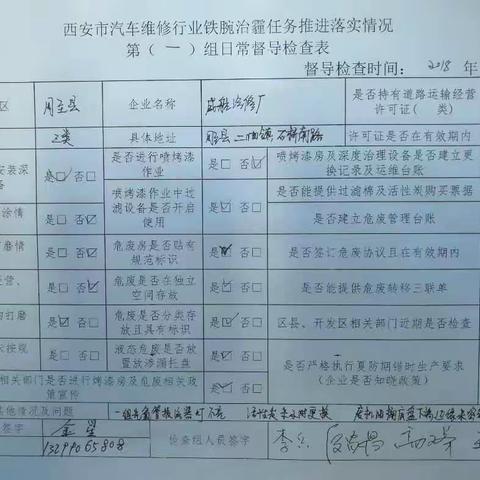 西安市汽车维修行业铁腕治霾任务推进落实情况
第（一）组日常督导检查表
督导检查时间：2018 年
区 周至县 企业名称 修理厂 是否持有道路运输经营许可证（ 类）
二类 具体地址 许可证是否在有效期内
安装深 是□ 否□ 是否进行喷烤漆作业 是□ 否☑ 喷烤漆房及深度治理设备是否建立更换记录及运维台账
备
涂情 是□ 否☑ 喷烤漆作业中过滤设备是否开启使用 是☑ 否□ 是否能提供过滤棉及活性炭购买票据
是否建立危废管理台账
磨情 是□ 否☑ 危废房是否贴有规范标识 是☑ 否□ 是否签订危废协议且在有效期内
经营、 是□ 否☑ 危废是否在独立空间存放 是☑ 否□ 是否能提供危废转移三联单
打磨 是☑ 否□ 危废是否分类存放且具有标识 是☑ 否□ 区县、开发区相关部门近期是否检查
按规 是☑ 否□ 液态危废是否放置放渗漏托盘 是☑ 否□ 是否严格执行夏防期错时生产要求（企业是否知晓政策）
相关部门是否进行烤漆房及危废相关政策宣传 是☑ 否□
其他情况及问题
签字 金星 检查组人员签字
13299065808